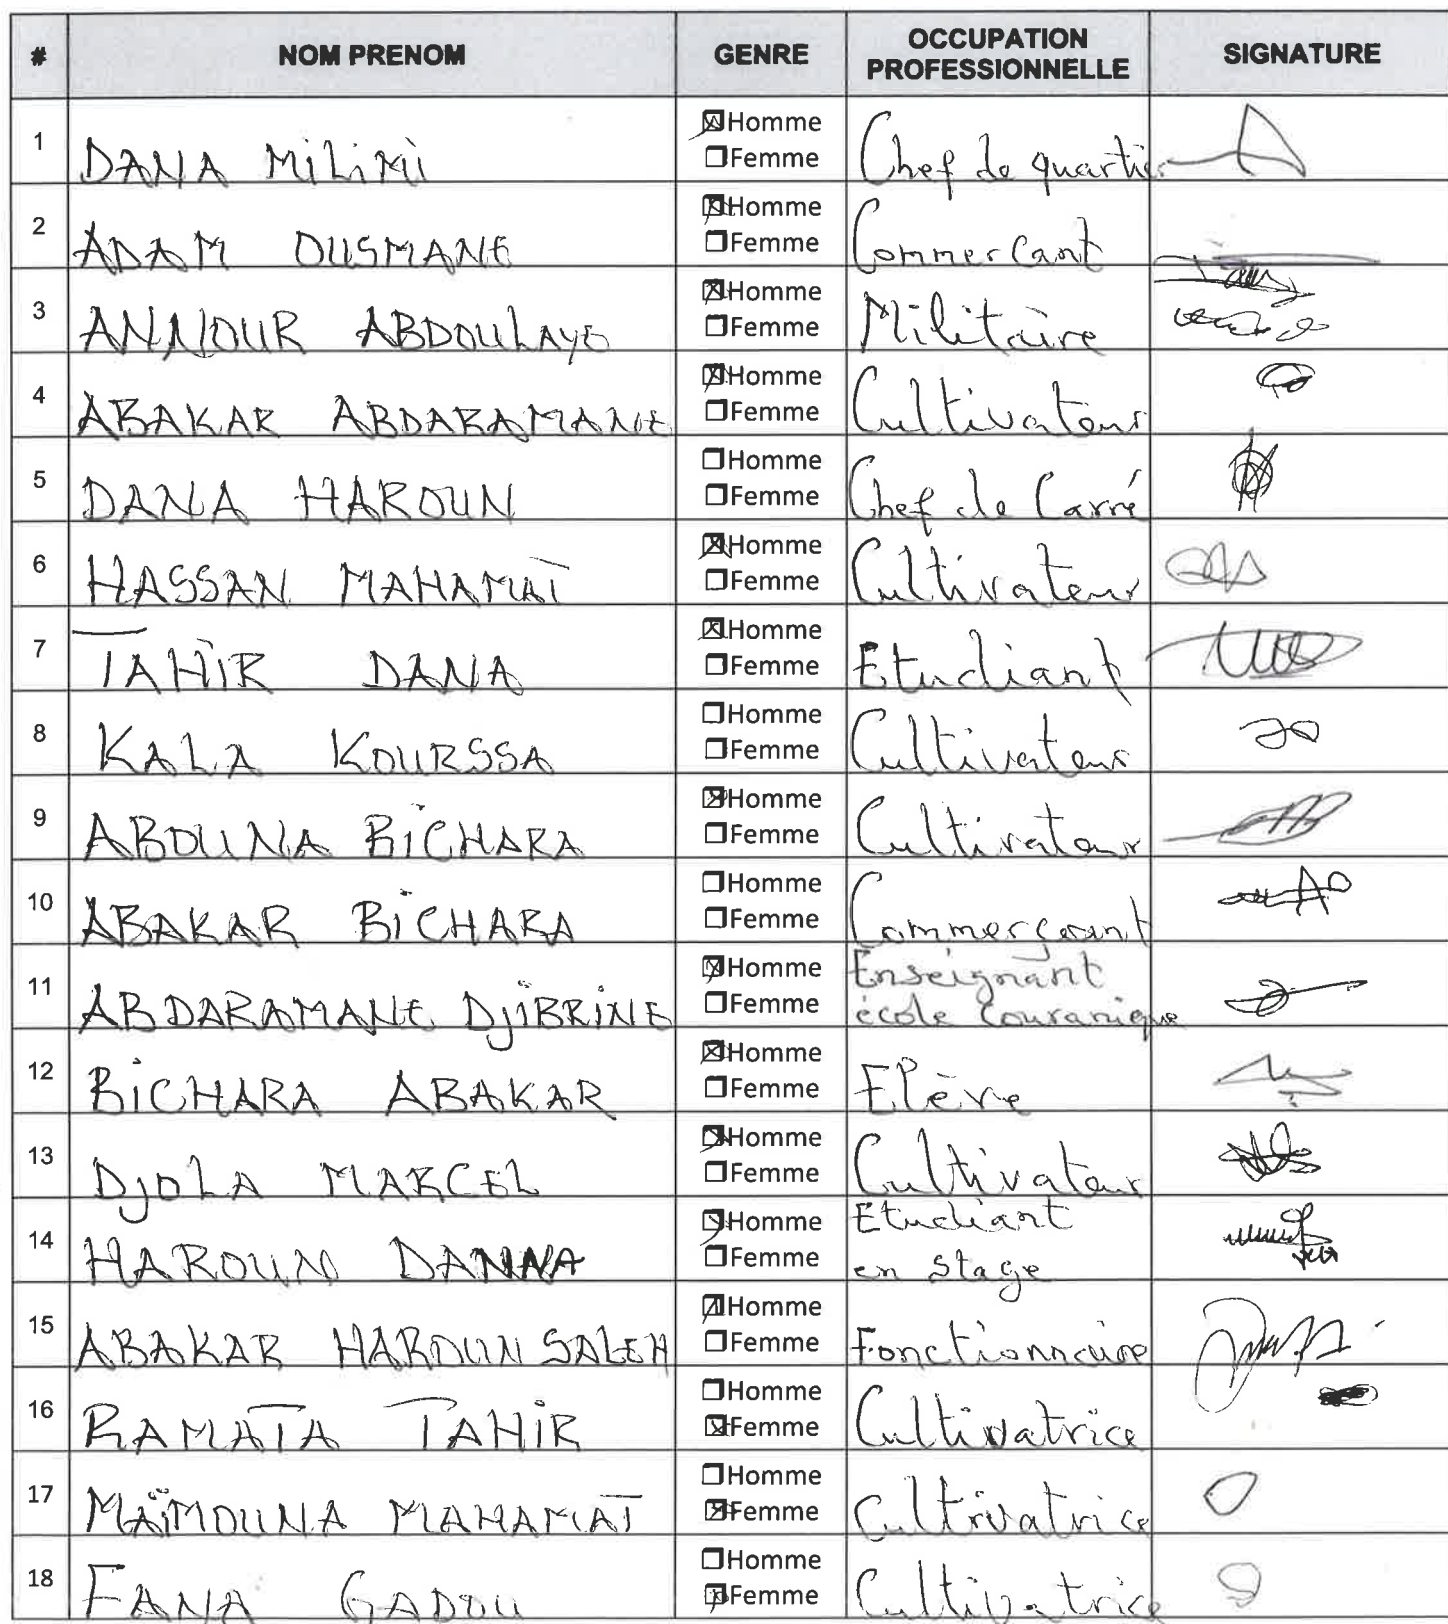 # NOM PRENOM GENRE OCCUPATION PROFESSIONNELLE SIGNATURE
1 DANA MiLiMi ☒Homme ☐Femme Chef de quartier
2 ADAM OUSMANE ☒Homme ☐Femme CommerCant
3 ANNOUR ABDOULAYE ☒Homme ☐Femme Militaire
4 ABAKAR ABDARAMANE ☒Homme ☐Femme Cultivateur
5 DANA HAROUN ☐Homme ☐Femme Chef de Carré
6 HASSAN MAHAMAT ☒Homme ☐Femme Cultivateur
7 TAHiR DANA ☒Homme ☐Femme Etudiant
8 KALA KOURSSA ☐Homme ☐Femme Cultivateur
9 ABOUNA BiCHARA ☒Homme ☐Femme Cultivateur
10 ABAKAR BiCHARA ☐Homme ☐Femme Commerçant
11 ABDARAMANE DjiBRiNE ☒Homme ☐Femme Enseignant école Couranique
12 BiCHARA ABAKAR ☒Homme ☐Femme Elève
13 DjOLA MARCEL ☒Homme ☐Femme Cultivateur
14 HAROUN DANNA ☒Homme ☐Femme Etudiant en stage
15 ABAKAR HAROUN SALEH ☒Homme ☐Femme Fonctionnaire
16 RAMATA TAHiR ☐Homme ☒Femme Cultivatrice
17 MAÏMOUNA MAHAMAT ☐Homme ☒Femme Cultivatrice
18 FANA GADOU ☐Homme ☒Femme Cultivatrice